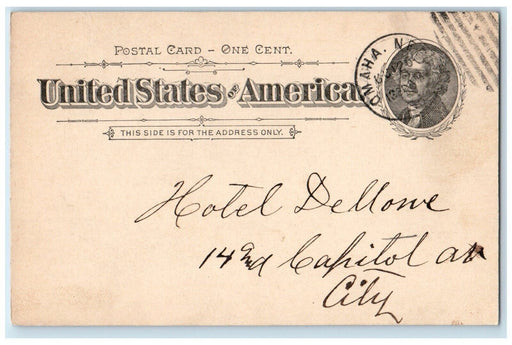 POSTAL CARD – ONE CENT.
United States OF America
THIS SIDE IS FOR THE ADDRESS ONLY.
OMAHA, N
Hotel Dellone
14th & Capitol av
City